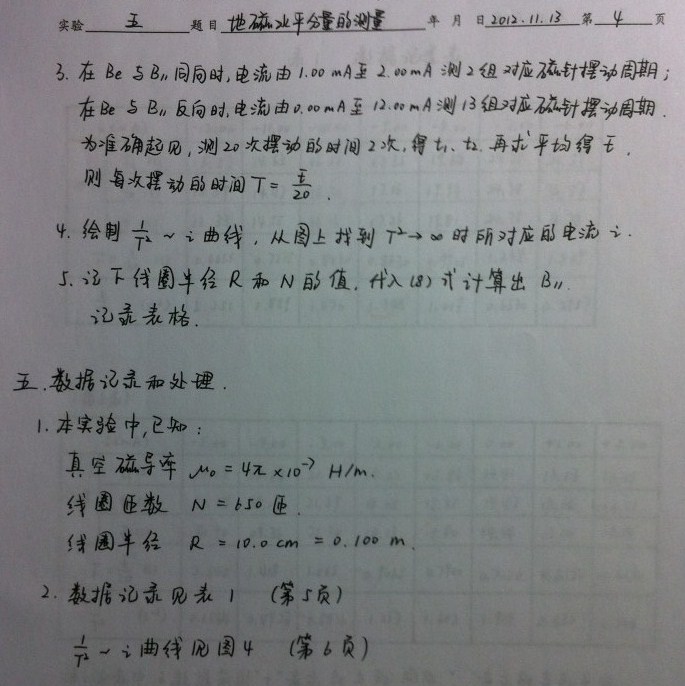 实验 五 题目 地磁水平分量的测量 年 月 日 2012.11.13 第 4 页
3. 在 Be 与 B∥ 同向时,电流由 1.00 mA 至 2.00 mA 测 2 组对应磁针摆动周期;
在 Be 与 B∥ 反向时,电流由 0.00 mA 至 12.00 mA 测 13 组对应磁针摆动周期.
为准确起见,测 20 次摆动的时间 2 次,得 t₁、t₂ 再求平均得 t̄.
则每次摆动的时间 T = t̄/20.
4. 绘制 1/T² ~ i 曲线, 从图上找到 T² → ∞ 时所对应的电流 i.
5. 记下线圈半径 R 和 N 的值, 代入 (8) 式计算出 B∥.
记录表格.
五. 数据记录和处理.
1. 本实验中,已知:
真空磁导率 μ₀ = 4π × 10⁻⁷ H/m.
线圈匝数 N = 650 匝.
线圈半径 R = 10.0 cm = 0.100 m.
2. 数据记录见表 1 (第5页)
1/T² ~ i 曲线见图4 (第6页)